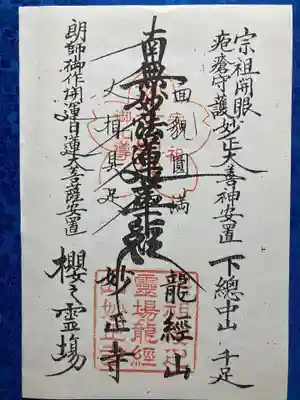 宗祖開眼
疱瘡守護妙正大善神安置
下總中山 千足
面貌圓満
南無妙法蓮華経
大相具足
龍經山
妙正寺
朗師御作開運日蓮大菩薩安置
櫻之霊場
靈場龍經